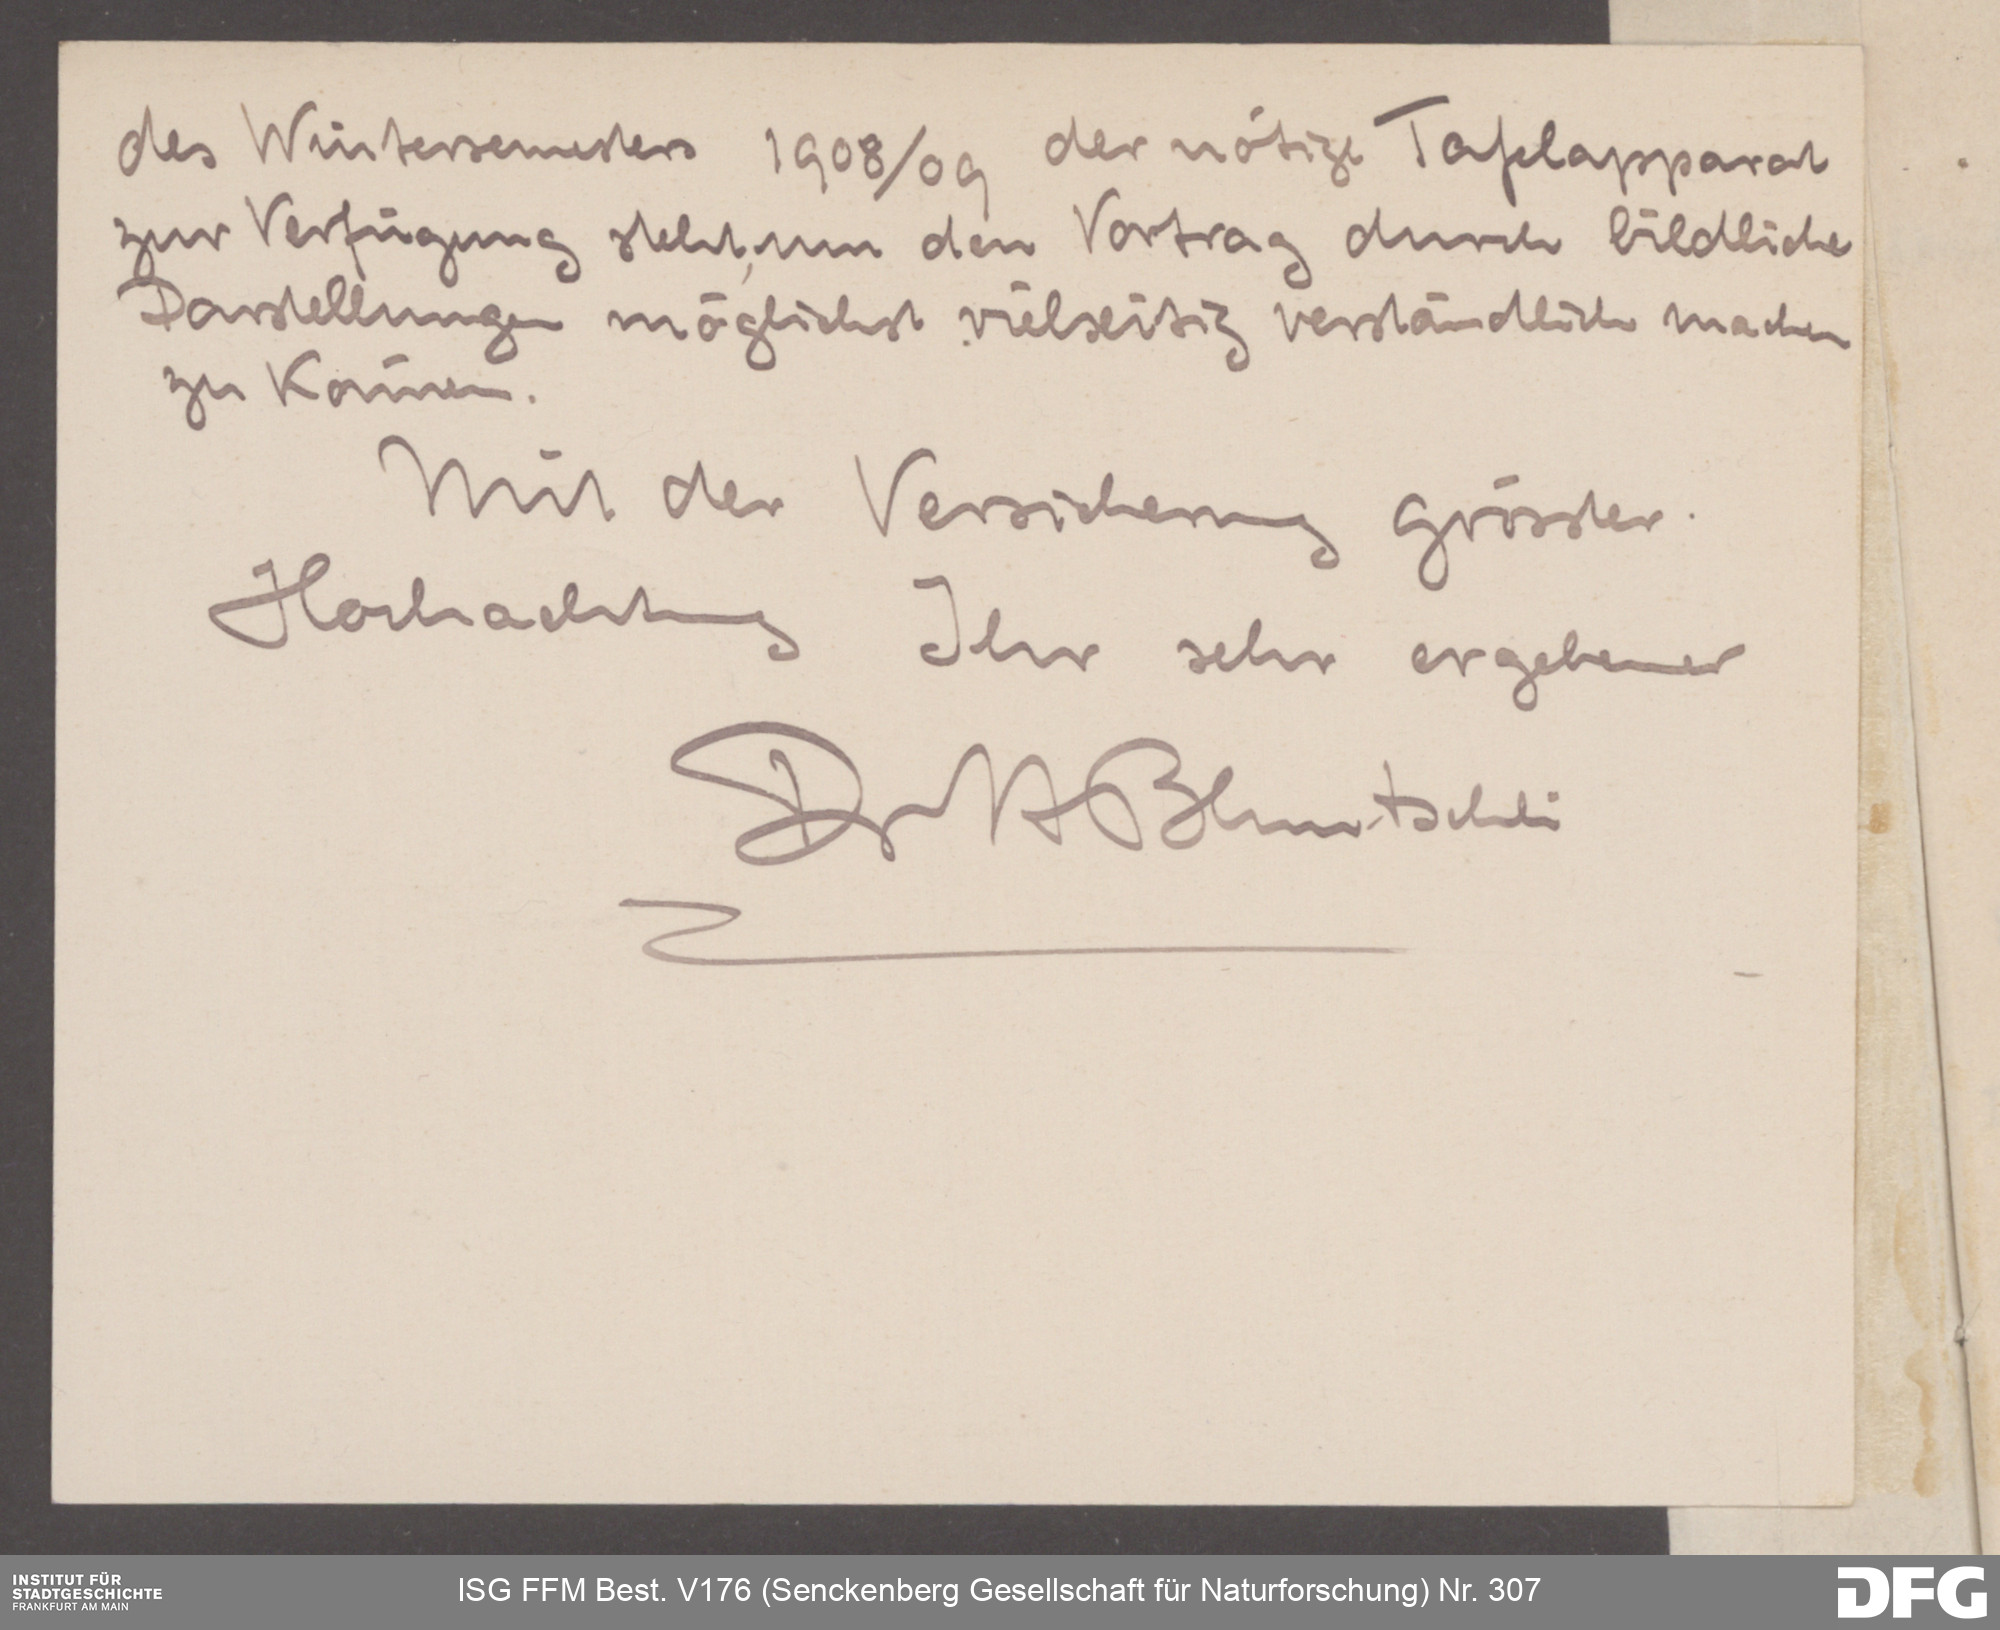 des Wintersemesters 1908/09 der nötige Tafelapparat
zur Verfügung steht, um den Vortrag durch bildliche
Darstellungen möglichst vielseitig verständlich machen
zu können.
Mit der Versicherung grösster
Hochachtung Ihr sehr ergebener
Dr H Bluntschli
INSTITUT FÜR
STADTGESCHICHTE
FRANKFURT AM MAIN
ISG FFM Best. V176 (Senckenberg Gesellschaft für Naturforschung) Nr. 307
DFG